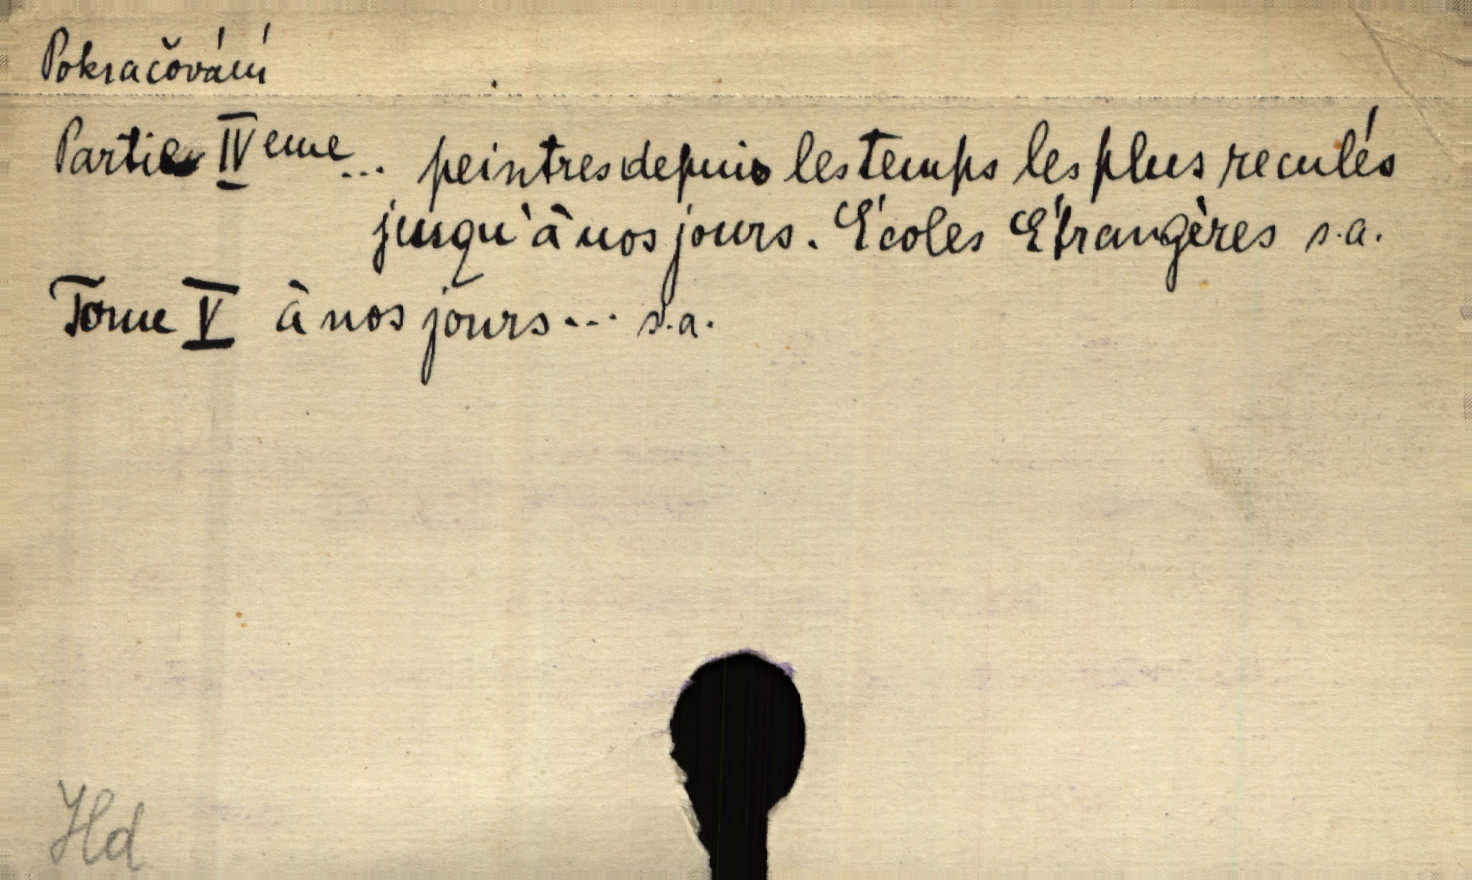 Pokračování
Partie IVeme... peintres depuis les temps les plus reculés
jusqu'à nos jours. Écoles Étrangères s.a.
Tome V à nos jours... s.a.
Hd